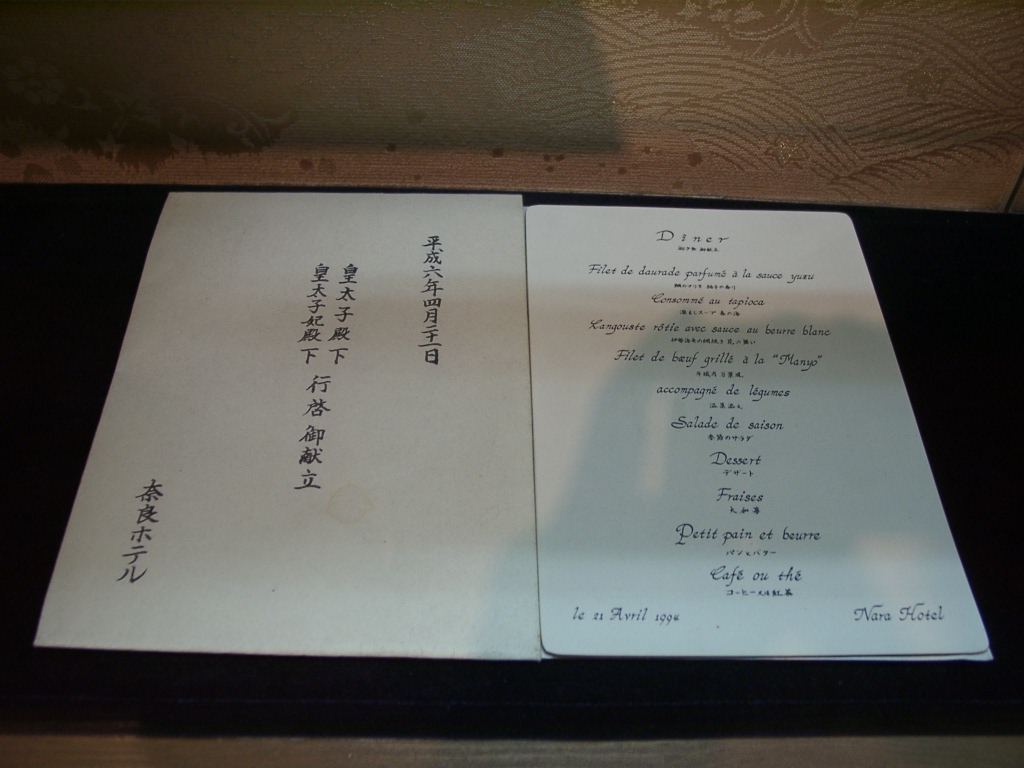 平成六年四月二十一日
皇太子殿下
皇太子妃殿下
行啓御献立
奈良ホテル
Diner
Filet de daurade parfumé à la sauce yuzu
Consommé au tapioca
Langouste rôtie avec sauce au beurre blanc
Filet de bœuf grillé à la "Manyo"
accompagné de légumes
温菜添え
Salade de saison
季節のサラダ
Dessert
デザート
Fraises
Petit pain et beurre
パンとバター
Café ou thé
コーヒー又は紅茶
le 21 Avril 1994
Nara Hotel